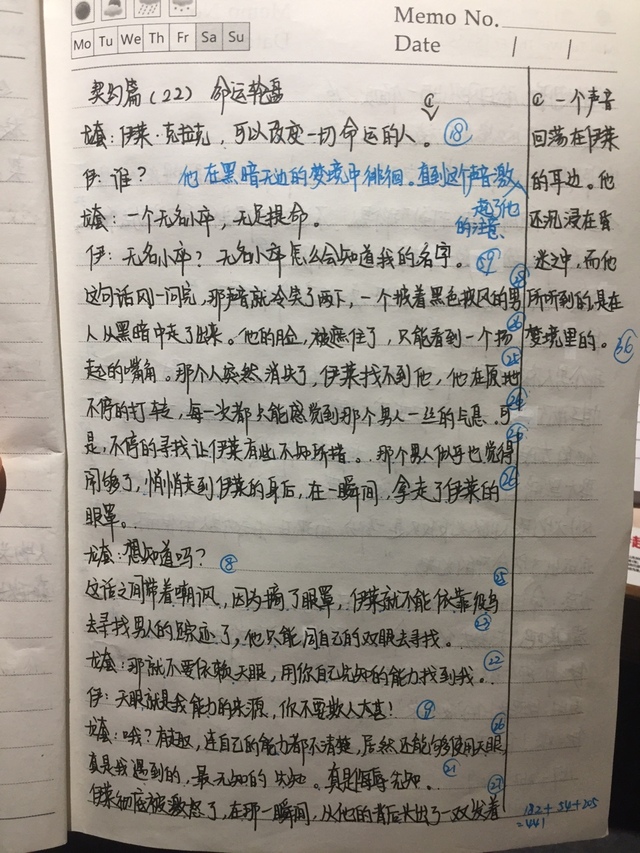 Memo No.
Mo Tu We Th Fr Sa Su
Date / /
契约篇(22) 命运轮盘
龙套:伊莱·克拉克,可以改变一切命运的人。 18
伊:谁? 他在黑暗无边的梦境中徘徊。直到这个声音激
起了他
的注意
龙套:一个无名小卒,无足提命。
伊:无名小卒?无名小卒怎么会知道我的名字。 59
这句话刚一问完,那声音就冷笑了两下,一个披着黑色披风的男
人从黑暗中走了出来。他的脸,被遮住了,只能看到一个扬
起的嘴角。那个人突然消失了,伊莱找不到他,他在原地 25
不停的打转,每一次都只能感觉到那个男人一丝的气息。可 24
是,不停的寻找让伊莱有些不知所措。那个男人似乎也觉得
闹够了,悄悄走到伊莱的身后,在一瞬间,拿走了伊莱的
眼罩。
龙套:想知道吗? 8
这话之间带着嘲讽,因为摘了眼罩,伊莱就不能依靠役鸟 25
去寻找男人的踪迹了,他只能用自己的双眼去寻找。 23
龙套:那就不要依赖天眼,用你自己先知的能力找到我。 22
伊:天眼就是我能力的来源,你不要欺人太甚! 19
龙套:哦?有趣,连自己的能力都不清楚,居然还能够使用天眼, 26
真是我遇到的,最无知的先知。真是侮辱先知。 21
伊莱彻底被激怒了,在那一瞬间,从他的背后长出了一双发着 27
182+54+205
=441
@ 一个声音
回荡在伊莱
的耳边。他
还沉浸在昏
迷之中,而他
所听到的是在
梦境里的。 36